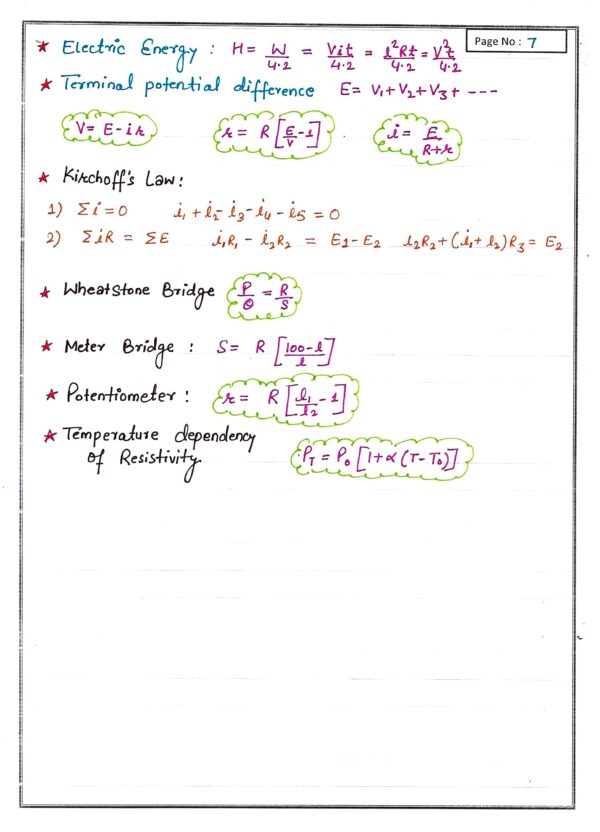 Page No : 7
★ Electric Energy : H = W/4.2 = Vit/4.2 = i²Rt/4.2 = V²t/4.2
★ Terminal potential difference E = V₁ + V₂ + V₃ + ---
V = E - ir r = R [E/V - 1] i = E/R+r
★ Kirchoff's Law :
1) Σi = 0 i₁ + i₂ - i₃ - i₄ - i₅ = 0
2) ΣiR = ΣE i₁R₁ - i₂R₂ = E₁ - E₂ i₂R₂ + (i₁ + i₂)R₃ = E₂
★ WheatStone Bridge P/Q = R/S
★ Meter Bridge : S = R [100-l/l]
★ Potentiometer : r = R [l₁/l₂ - 1]
★ Temperature dependency
of Resistivity ρT = ρ₀ [1 + α (T - T₀)]